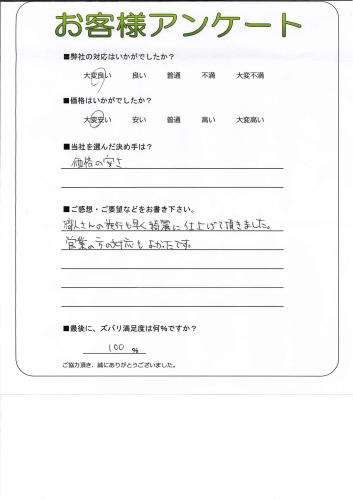 お客様アンケート
■弊社の対応はいかがでしたか?
大変良い 良い 普通 不満 大変不満
■価格はいかがでしたか?
大変安い 安い 普通 高い 大変高い
■当社を選んだ決め手は?
価格の安さ
■ご感想・ご要望などをお書き下さい。
職人さんの施行も早く綺麗に仕上げて頂きました。
営業の方の対応もよかったです。
■最後に、ズバリ満足度は何%ですか?
100 %
ご協力頂き、誠にありがとうございました。